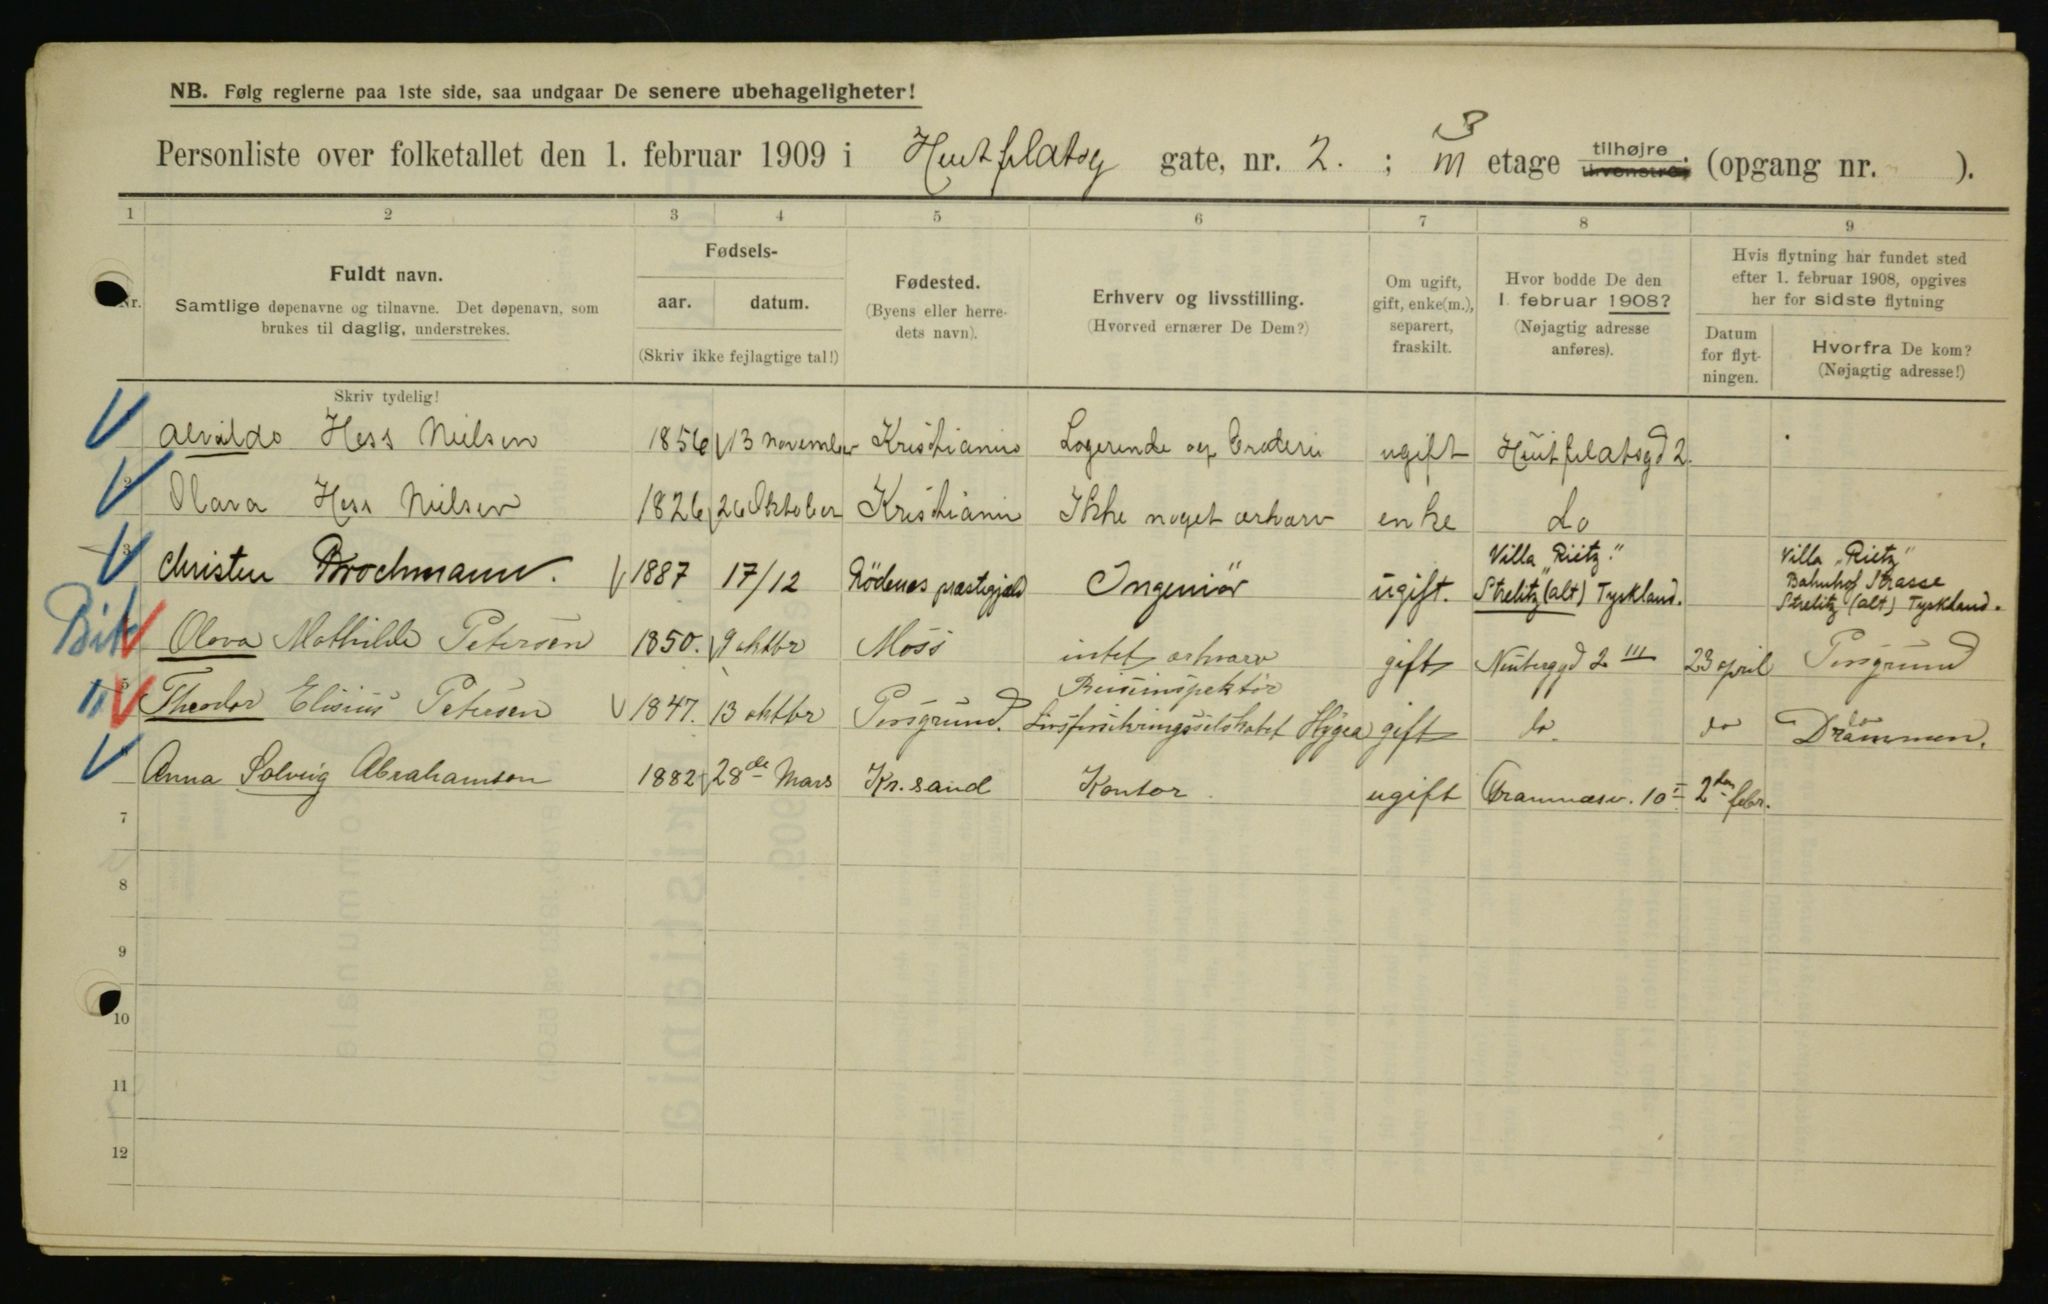 NB. Følg reglerne paa 1ste side, saa undgaar De senere ubehageligheter!
Personliste over folketallet den 1. februar 1909 i Huitfelatsg gate, nr. 2. ; 3 III etage tilhøjre tilvenstre; (opgang nr. ).
1 2 3 4 5 6 7 8 9
Nr.
Fuldt navn.
Samtlige døpenavne og tilnavne. Det døpenavn, som
brukes til daglig, understrekes.
Fødsels-
aar. datum.
(Skriv ikke fejlagtige tal!)
Fødested.
(Byens eller herre-
dets navn).
Erhverv og livsstilling.
(Hvorved ernærer De Dem?)
Om ugift,
gift, enke(m.),
separert,
fraskilt.
Hvor bodde De den
1. februar 1908?
(Nøjagtig adresse
anføres).
Hvis flytning har fundet sted
efter 1. februar 1908, opgives
her for sidste flytning
Datum
for flyt-
ningen.
Hvorfra De kom?
(Nøjagtig adresse!)
Skriv tydelig!
Alvilda Hess Nielsen 1856 13 november Kristiania Logerende og Broderi ugift Huitfelatsgd 2.
2 Olava Hess Nielsen 1826 26 Oktober Kristiania Ikke noget erhverv enke do
3 Christen Brochmann. 1887 17/12 Rödenes præstegjeld Ingeniör ugift. Villa "Riitz" Strelitz (alt) Tyskland. Villa "Rietz" Bahnhof Strasse Strelitz (alt) Tyskland.
Bik Olava Mathilde Petersen 1850. 9 oktbr Moss intet erhverv gift 2 III 23 april Porsgrund
5 Theodor Elisius Petersen 1847. 13 oktbr Porsgrund. Reiseinspektör Livsforsikringsselskabet Hygea gift do. do do Drammen.
Anna Solveig Abrahamsen 1882 28de Mars Kr.sand Kontor. ugift 10 I 2den febr.
7
8
9
10
11
12